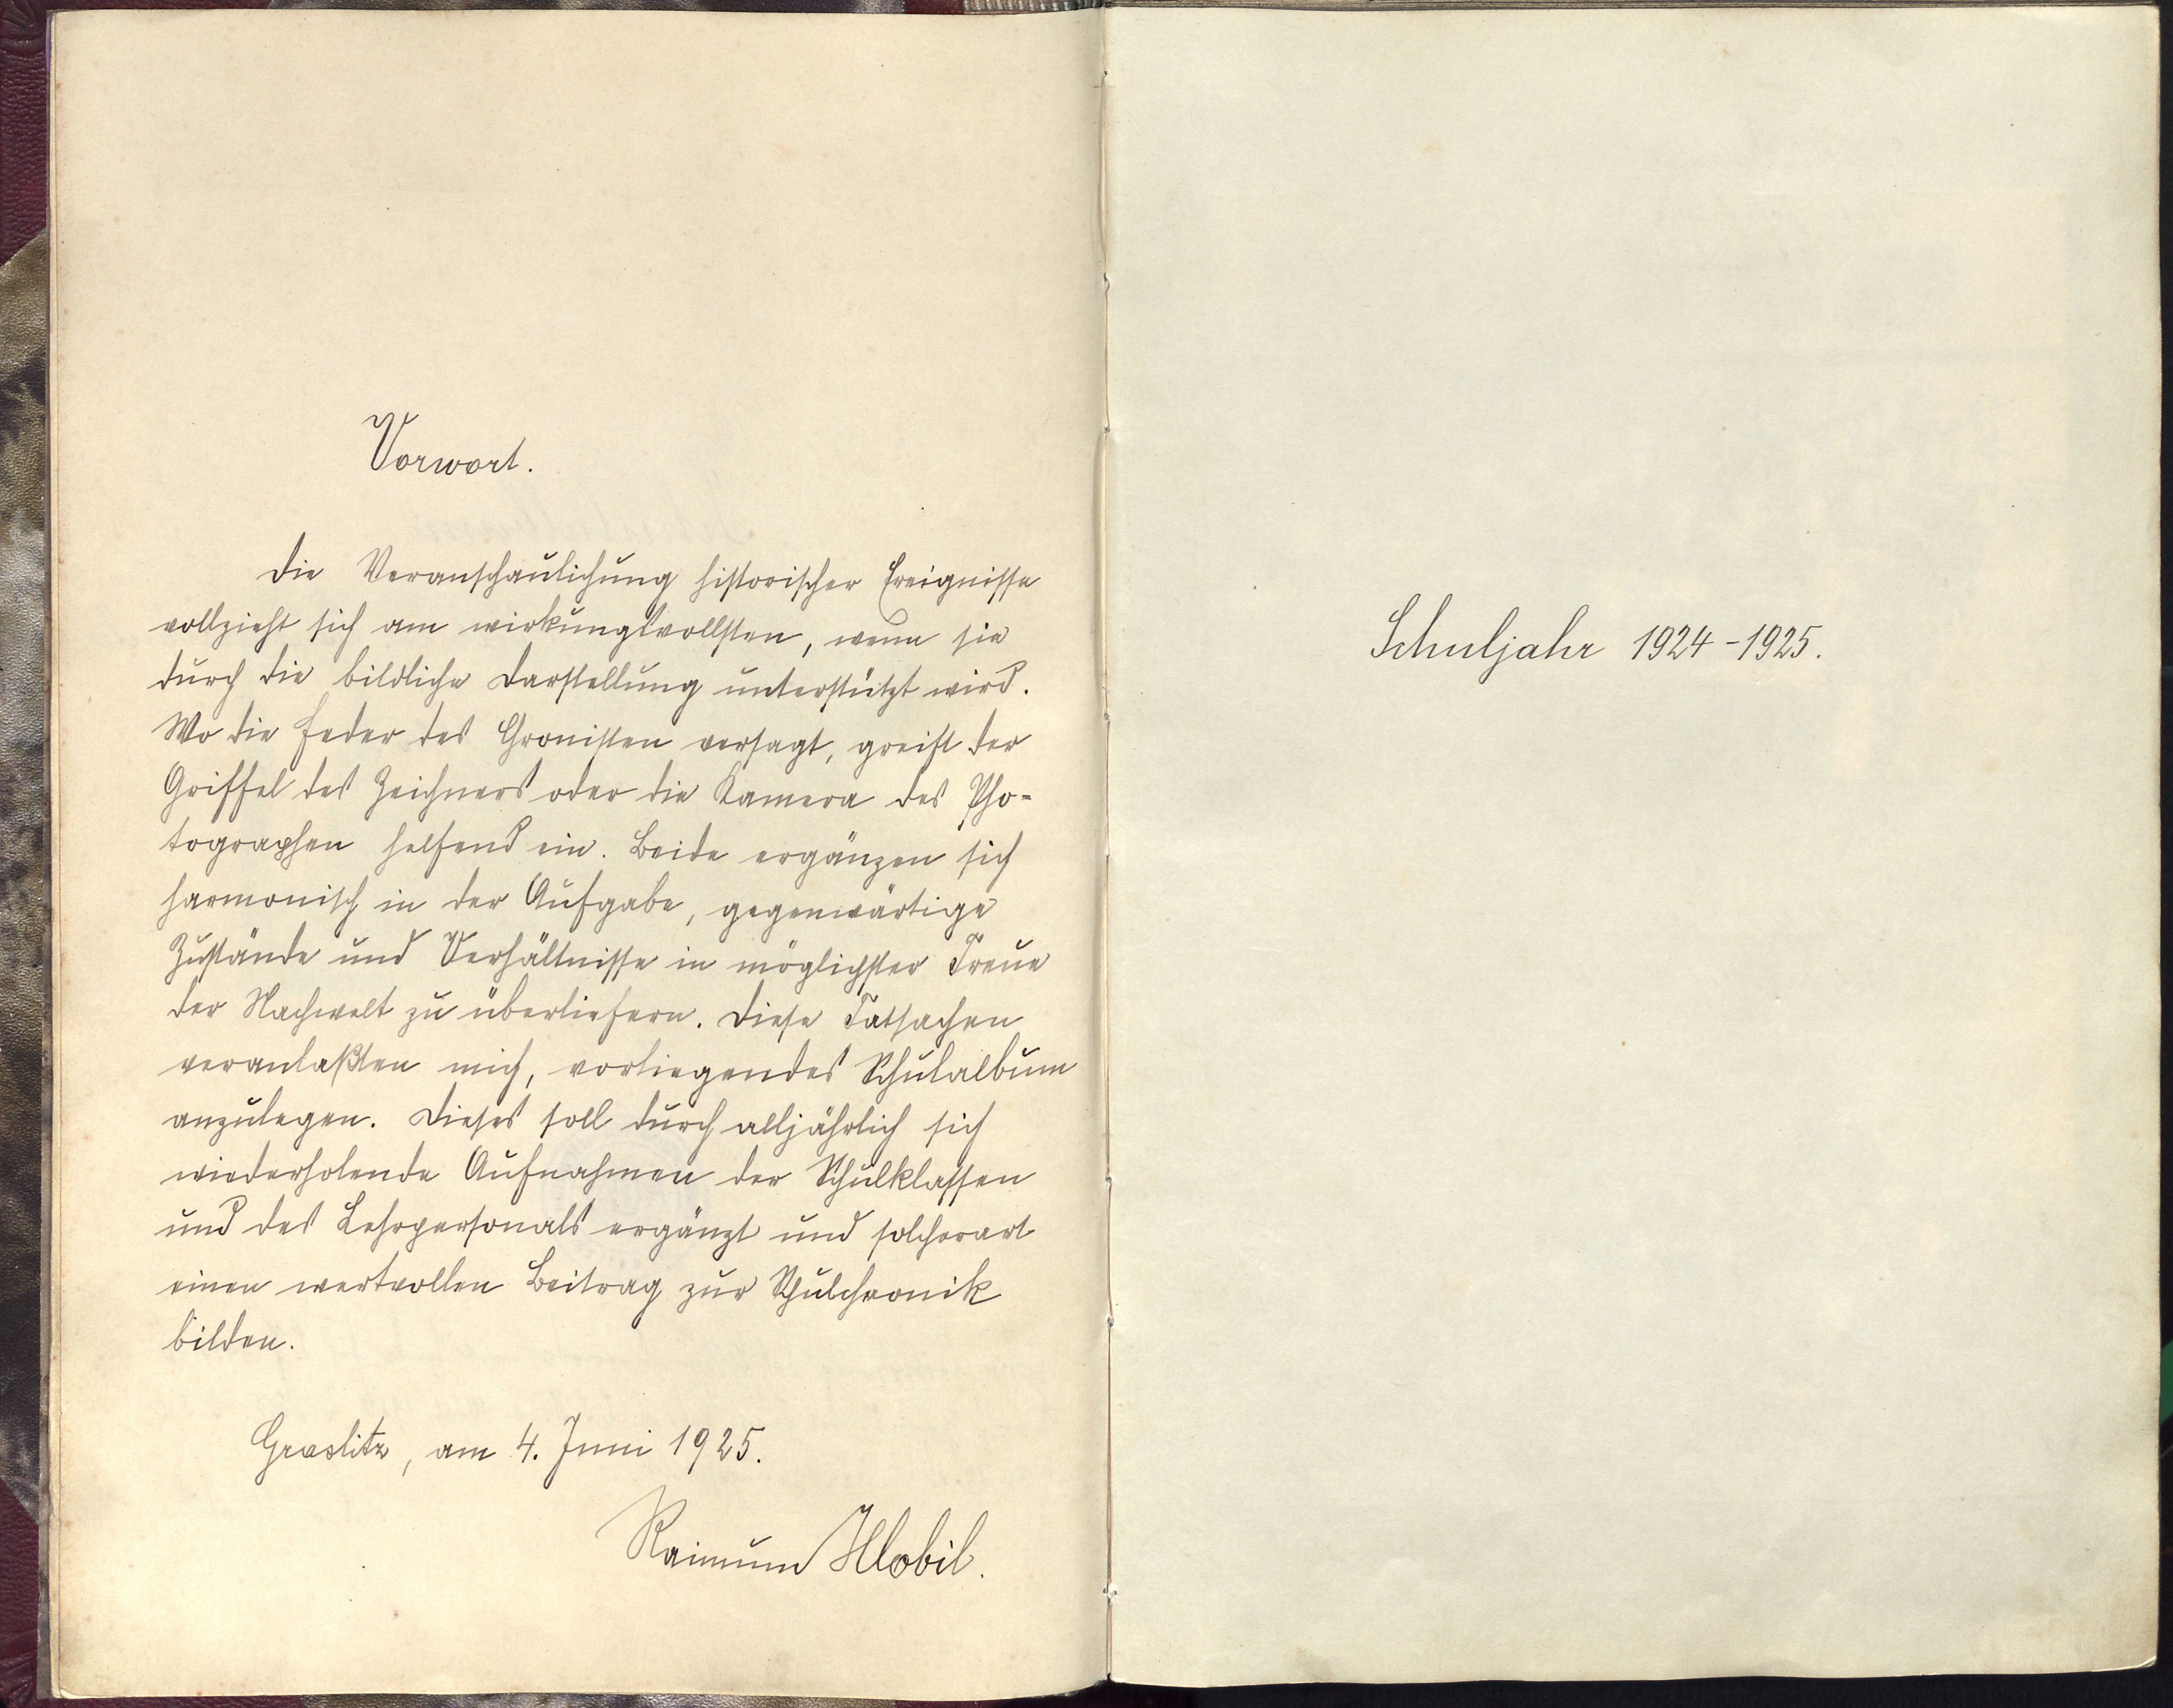 Vorwort.
Die Veranschaulichung historischer Ereignisse
vollzieht sich am wirkungsvollsten, wenn sie
durch die bildliche Darstellung unterstützt wird.
Wo die Feder des Chronisten versagt, greift der
Griffel des Zeichners oder die Kamera des Pho-
tographen helfend ein. Beide ergänzen sich
harmonisch in der Aufgabe, gegenwärtige
Zustände und Verhältnisse in möglichster Treue
der Nachwelt zu überliefern. Diese Tatsachen
veranlaßten mich, vorliegendes Schulalbum
anzulegen. Dieses soll durch alljährlich sich
wiederholende Aufnahmen der Schulklassen
und des Lehrpersonals ergänzt und solcherart
einen wertvollen Beitrag zur Schulchronik
bilden.
Graslitz, am 4. Juni 1925.
Raimund Hlobil.
Schuljahr 1924-1925.